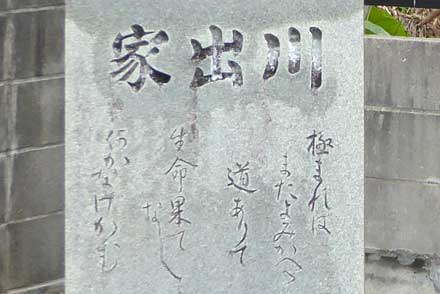 川出家
極まれは
またよみかへる
道ありて
生命果て
なし
何かなけかむ